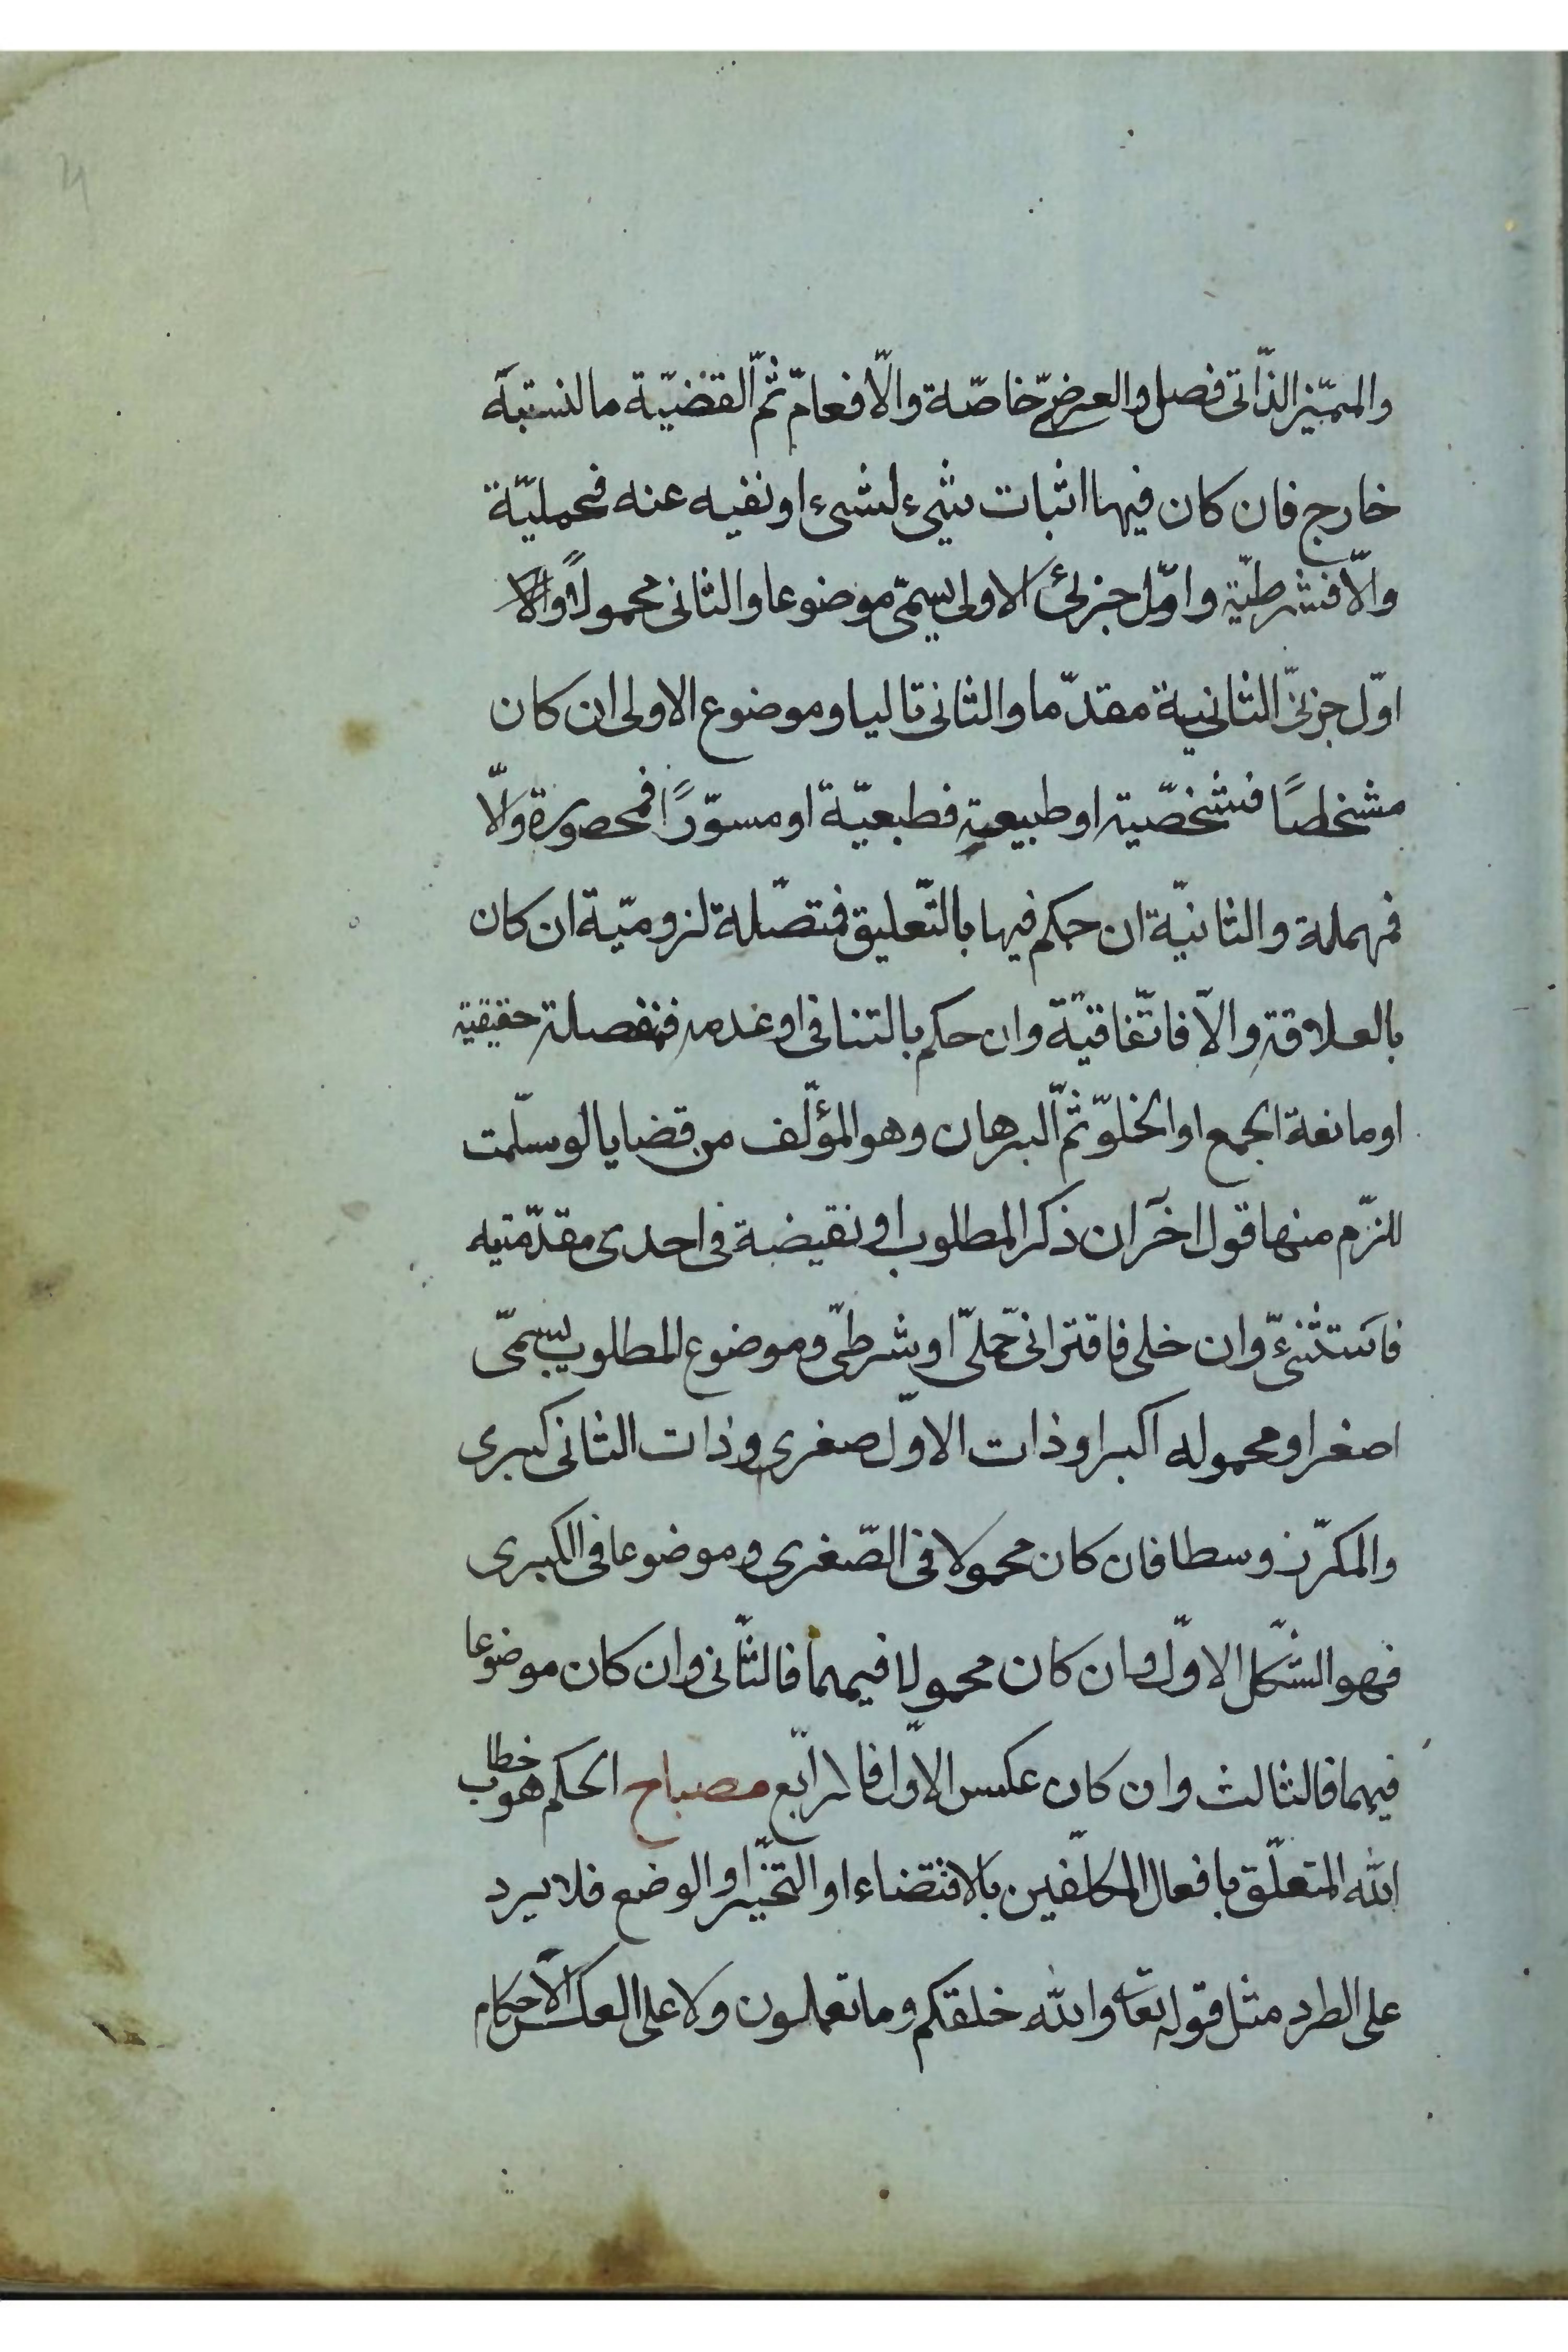 والمميّز الذّاتى فصل والعرضىّ خاصّة والّا فعامّ ثمّ القضيّة ما لنسبته
خارج فان كان فيها اثبات شىء لشىء او نفيه عنه فحمليّة
والّا فشرطيّة واوّل جزئى الاولى يسمّى موضوعا والثانى محمولاً
اوّل جزئىّ الثانية مقدّما والثانى تاليا وموضوع الاولى ان كان
مشخصاً فشخصّية او طبيعية فطبعيّة او مسوّرًا فمحصورة والّا
فمهملة والثانيّة ان حكم فيها بالتّعليق فمتصّلة لزوميّة ان كان
بالعلاقة والّا فاتّفاقيّة وان حكم بالتنافى او عدمه فمنفصلة حقيقية
او مانعة الجمع او الخلوّ ثمّ البرهان وهو المؤلّف من قضايا لو سلّمت
للزّم منها قول اخر ان ذكر المطلوب او نقيضة فى احدى مقدّمتيه
فاستثنىّ وان خلى فاقترانىّ حملىّ او شرطىّ وموضوع المطلوب يسمّى
اصغرا ومحموله اكبرا وذات الاوّل صغرى وذات الثانى كبرى
والمكرّر وسطا فان كان محمولا فى الصّغرى وموضوعا فى الكبرى
فهو الشّكل الاوّل وان كان محمولا فيهما فالثّانى وان كان موضوعا
فيهما فالثالث وان كان عكس الاوّل فالرّابع مصباح الحكم هو خطاب
الله المتعلّق بافعال المكلّفين بالاقتضاء او التخيّر او الوضع فلا يرد
على الطرد مثل قوله تعا والله خلقكم وما تعملون ولا على العكس الاحكام